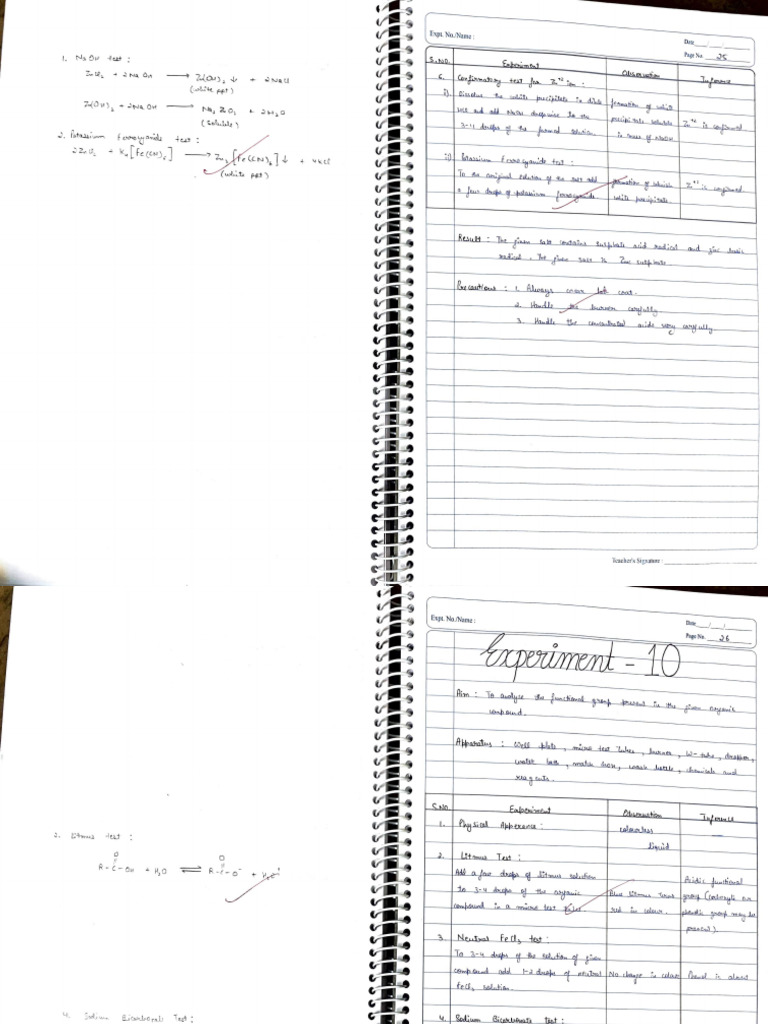 1. NaOH test :
ZnCl₂ + 2NaOH ⟶ Zn(OH)₂ ↓ + 2NaCl
(white ppt)
Zn(OH)₂ + 2NaOH ⟶ Na₂ZnO₂ + 2H₂O
(soluble)
2. Potassium Ferrocyanide test :
2ZnCl₂ + K₄[Fe(CN)₆] ⟶ Zn₂[Fe(CN)₆]↓ + 4KCl
(white ppt)
Expt. No./Name :
Date
Page No. 25
S.NO. Experiment Observation Inference
6. Confirmatory test for Zn⁺² ion :
i) Dissolve the white precipitate in dilute formation of white
HCl and add NaOH dropwise to the precipitate soluble Zn⁺² is confirmed
3-4 drops of the formed solution. in excess of NaOH
ii) Potassium Ferrocyanide test :
To the original solution of the salt add formation of whitish Zn⁺² is confirmed
a few drops of potassium ferrocyanide. white precipitate.
Result : The given salt contains sulphate acid radical and zinc basic
radical. The given salt is Zinc sulphate
Precautions : 1. Always wear lab coat.
2. Handle the burner carfully.
3. Handle the concentrated acids very carfully.
Teacher's Signature :
Expt. No./Name :
Date
Page No. 26
Experiment - 10
Aim : To analyse the functional group present in the given organic
compound.
Apparatus : Well plate, micro test tubes, burner, W-tube, dropper,
water bath, match box, wash bottle, chemicals and
reagents.
S.NO. Experiment Observation Inference
1. Physical Apperence : colourless —
liquid
2. Litmus Test :
Add a few drops of litmus solution Acidic functional
to 3-4 drops of the organic Blue litmus turns group (carboxylic or
compound in a micro test tube. red in colour. phenolic group may be
present).
3. Neutral FeCl₃ test :
To 3-4 drops of the solution of given
compound add 1-2 drops of neutral No change in colour Phenol is absent
FeCl₃ solution.
4. Sodium Bicarbonate test :
2. Litmus test :
O O
R-C-OH + H₂O ⇌ R-C-O⁻ + H₃O⁺
4. Sodium Bicarbonate Test :